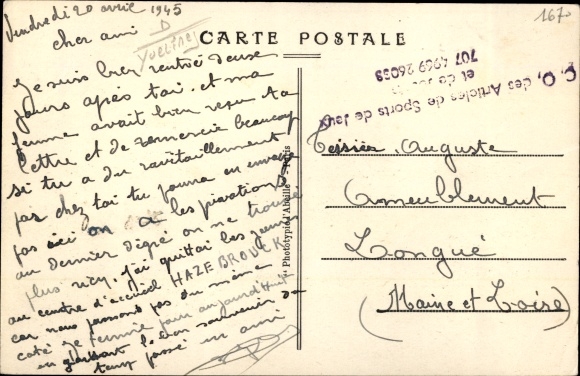 Vendredi 20 avril 1945
cher ami
D
Yvelines
1670
CARTE POSTALE
C. O. des Articles de Sports de Jeux
et de
707 4969 26058
Je suis bien rentré deux
jours après toi. et ma
femme avait bien reçu ta
lettre et te remercie beaucoup
si tu a du ravitaillement
pas chez toi tu pourra en envoyer
pas ici on a les privations
au dernier degré on ne trouve
plus rien. j'ai quittai les
au centre d'accueil HAZEBROUCK
car nous passons pas du même
coté je termine pour aujourd'hui
en le bon souvenir du
temp passé en ami
"Phototypie l'Abeille" - Paris
Teissier. Auguste
Ameublement
Longué
(Maine et Loire)